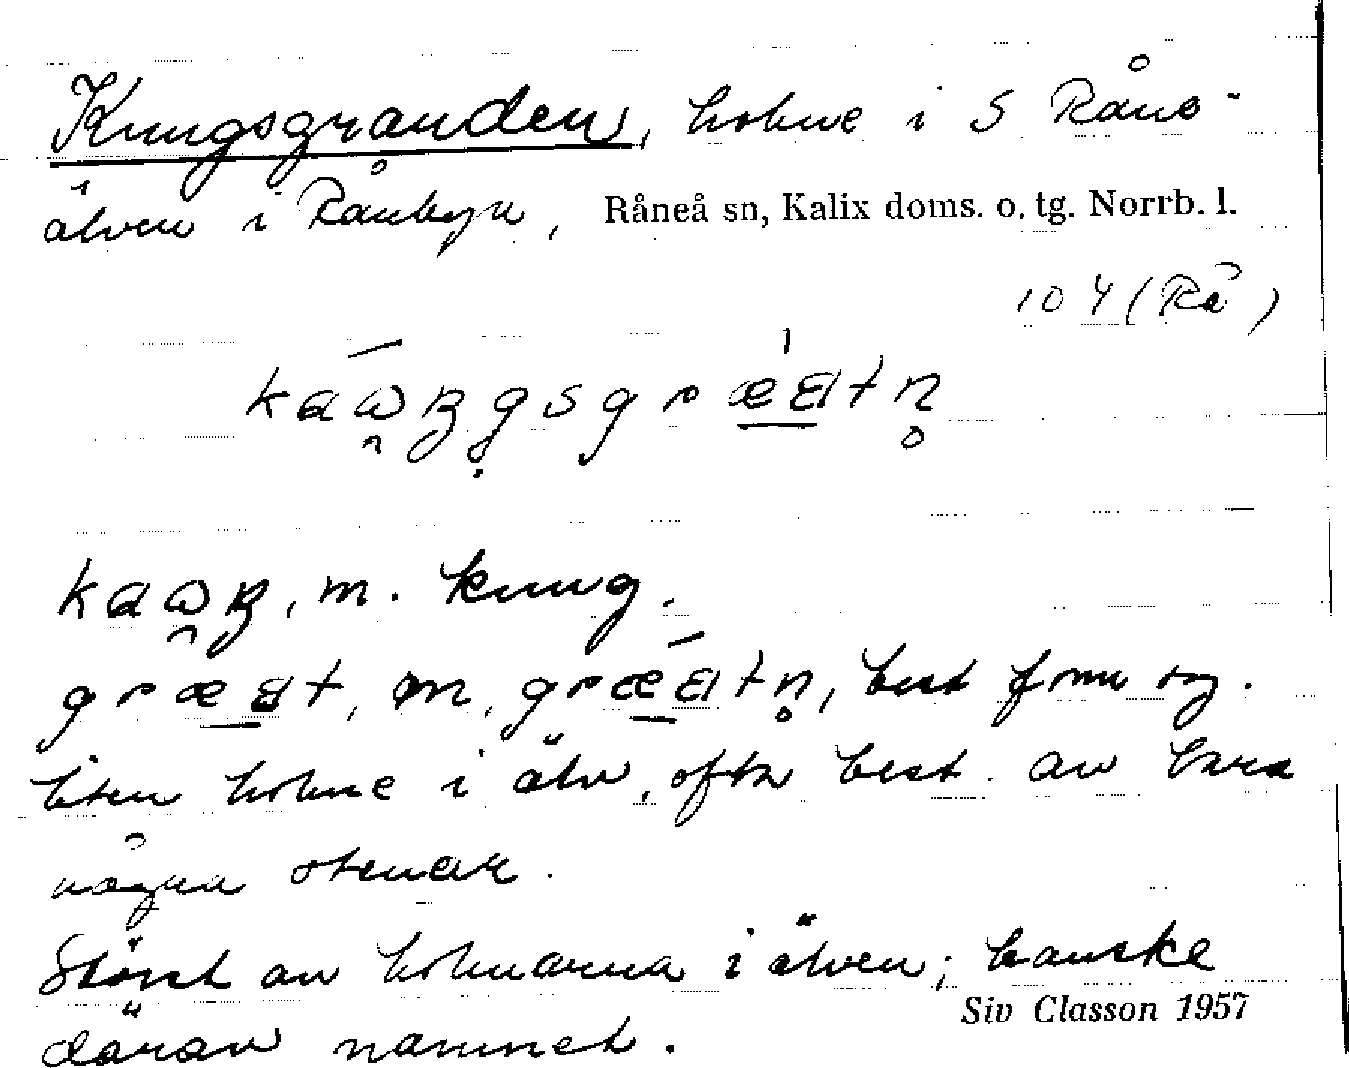 Kungsgranden, holme i S Råne-
älven i Rånbyn, Råneå sn, Kalix doms. o. tg. Norrb. l.
104 (Rå)
m. kung.
m, best form sg.
liten holme i älv, ofta best. av bara
några stenar.
Störst av holmarna i älven; kanske
Siv Classon 1957
därav namnet.